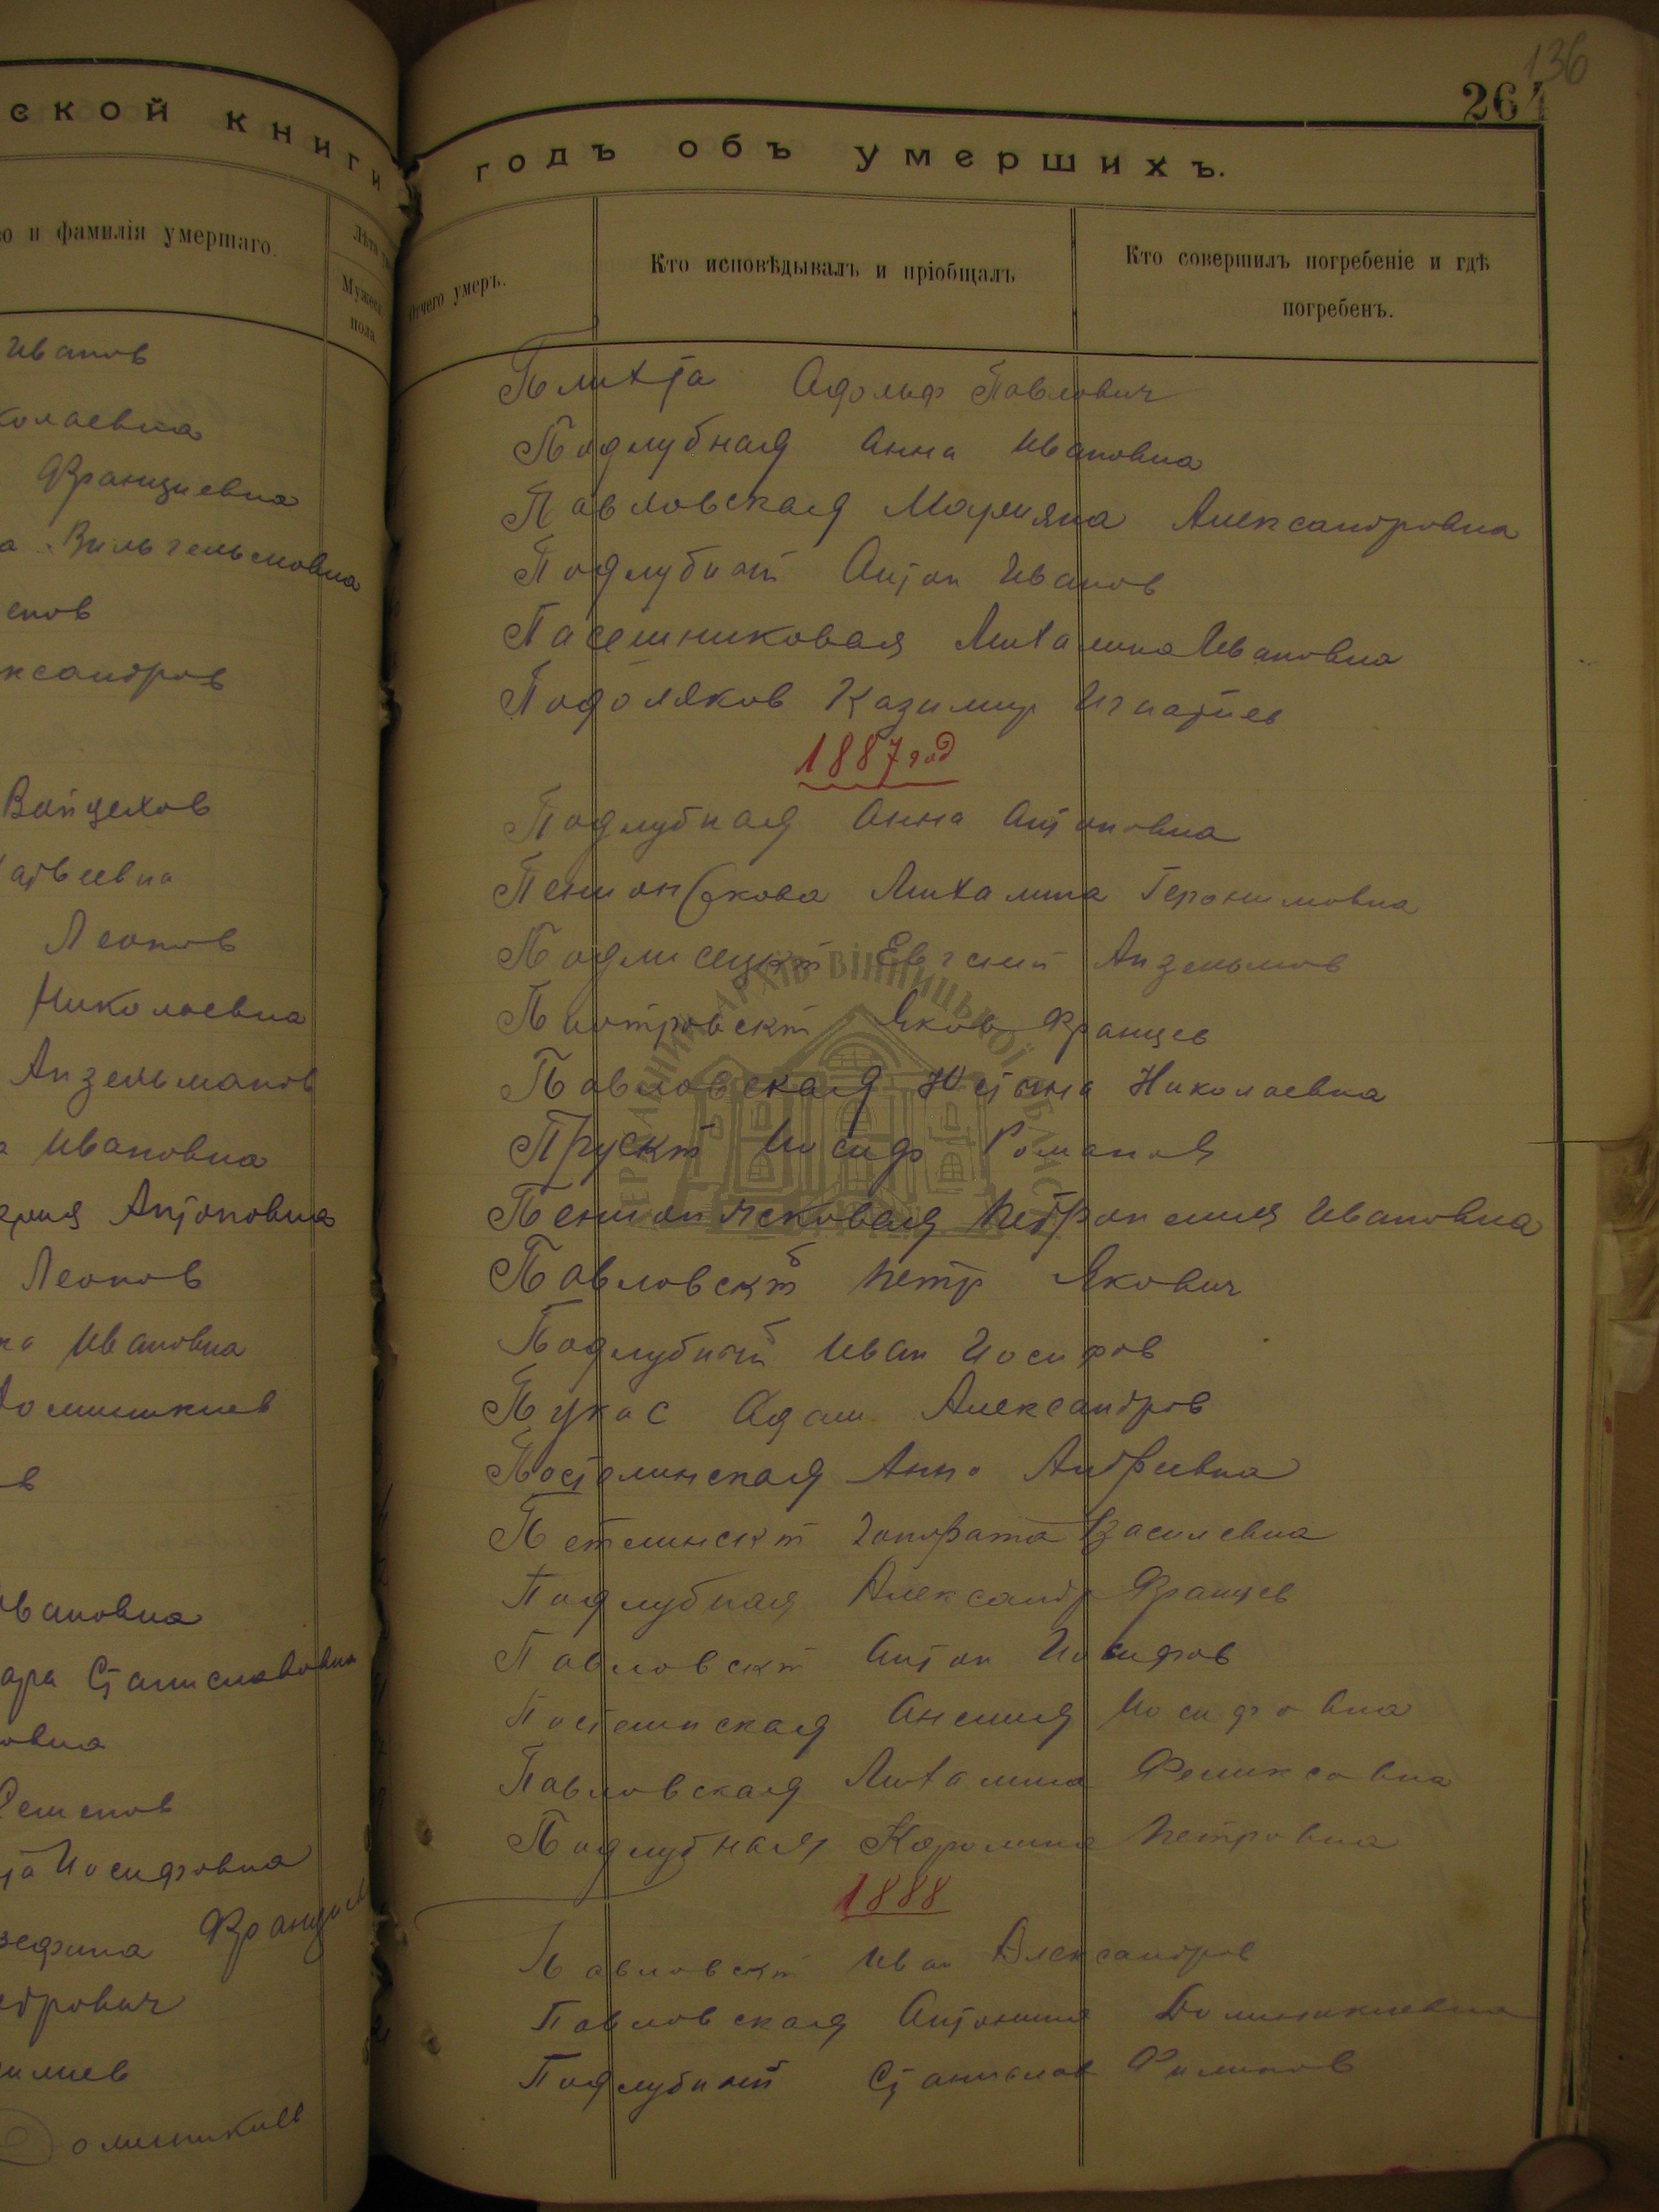 ской книги
о и фамилія умершаго.
Лѣта
Мужеска
пола
Иванов
колаевна
Францкевна
а Вильгельмовна
епов
ксандров
Войцехов
атвеевна
Леонов
Николаевна
Анзельмаков
а Ивановна
Антоновна
Леонов
на Ивановна
Доминикиев
в
Ивановна
ара Станиславовна
овна
Семенов
Иосифовна
зефина
етрович
илиев
оминикиев
136
264
годъ объ умершихъ.
Отчего умеръ.
Кто исповѣдывалъ и пріобщалъ
Кто совершилъ погребеніе и гдѣ
погребенъ.
Плихта Адольф Павлович
Подлубная Анна Ивановна
Павловская Марияна Александровна
Подлубный Антон Иванов
Пасешниковая Михалина Ивановна
Подоляков Казимир Игнатиев
1887 год
Подлубная Анна Антоновна
Михалина Геронимовна
Подлисецкй Евгений Анзельмов
Пиотровскй Яков Францев
Павловская Юстина Николаевна
Прускй Иосиф Романов
Ивановна
Павловскй Петр Якович
Подлубный Иван Иосифов
Пукас Адам Александров
Постолинская Анна Андреевна
Петлинскй Василевна
Подлубная Александр Францев
Павловскй Антон Иосифов
Иосифовна
Павловская Михалина Феликсовна
Подлубная Каролина Петровна
1888
Павловскй Иван Александров
Павловская Антонина Доминикиевна
Подлубный Станислав Филипов
ДЕРЖАВНИЙ АРХІВ ВІННИЦЬКОЇ ОБЛАСТІ